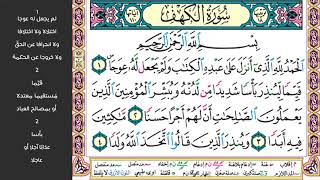 سُورَةُ الْكَهْفِ
بِسْمِ اللَّهِ الرَّحْمَٰنِ الرَّحِيمِ
الْحَمْدُ لِلَّهِ الَّذِي أَنزَلَ عَلَىٰ عَبْدِهِ الْكِتَابَ وَلَمْ يَجْعَل لَّهُ عِوَجًا ١
قَيِّمًا لِّيُنذِرَ بَأْسًا شَدِيدًا مِّن لَّدُنْهُ وَيُبَشِّرَ الْمُؤْمِنِينَ الَّذِينَ
يَعْمَلُونَ الصَّالِحَاتِ أَنَّ لَهُمْ أَجْرًا حَسَنًا ٢ مَّاكِثِينَ
فِيهِ أَبَدًا ٣ وَيُنذِرَ الَّذِينَ قَالُوا اتَّخَذَ اللَّهُ وَلَدًا ٤
لم يجعل له عوجا
اختلالا ولا اختلافا
ولا انحرافا عن الحق
ولا خروجا عن الحكمة
2
قيّما
مستقيما معتدلا
أو بمصالح العباد
2
بأسا
عذابا آجلا أو
عاجلا